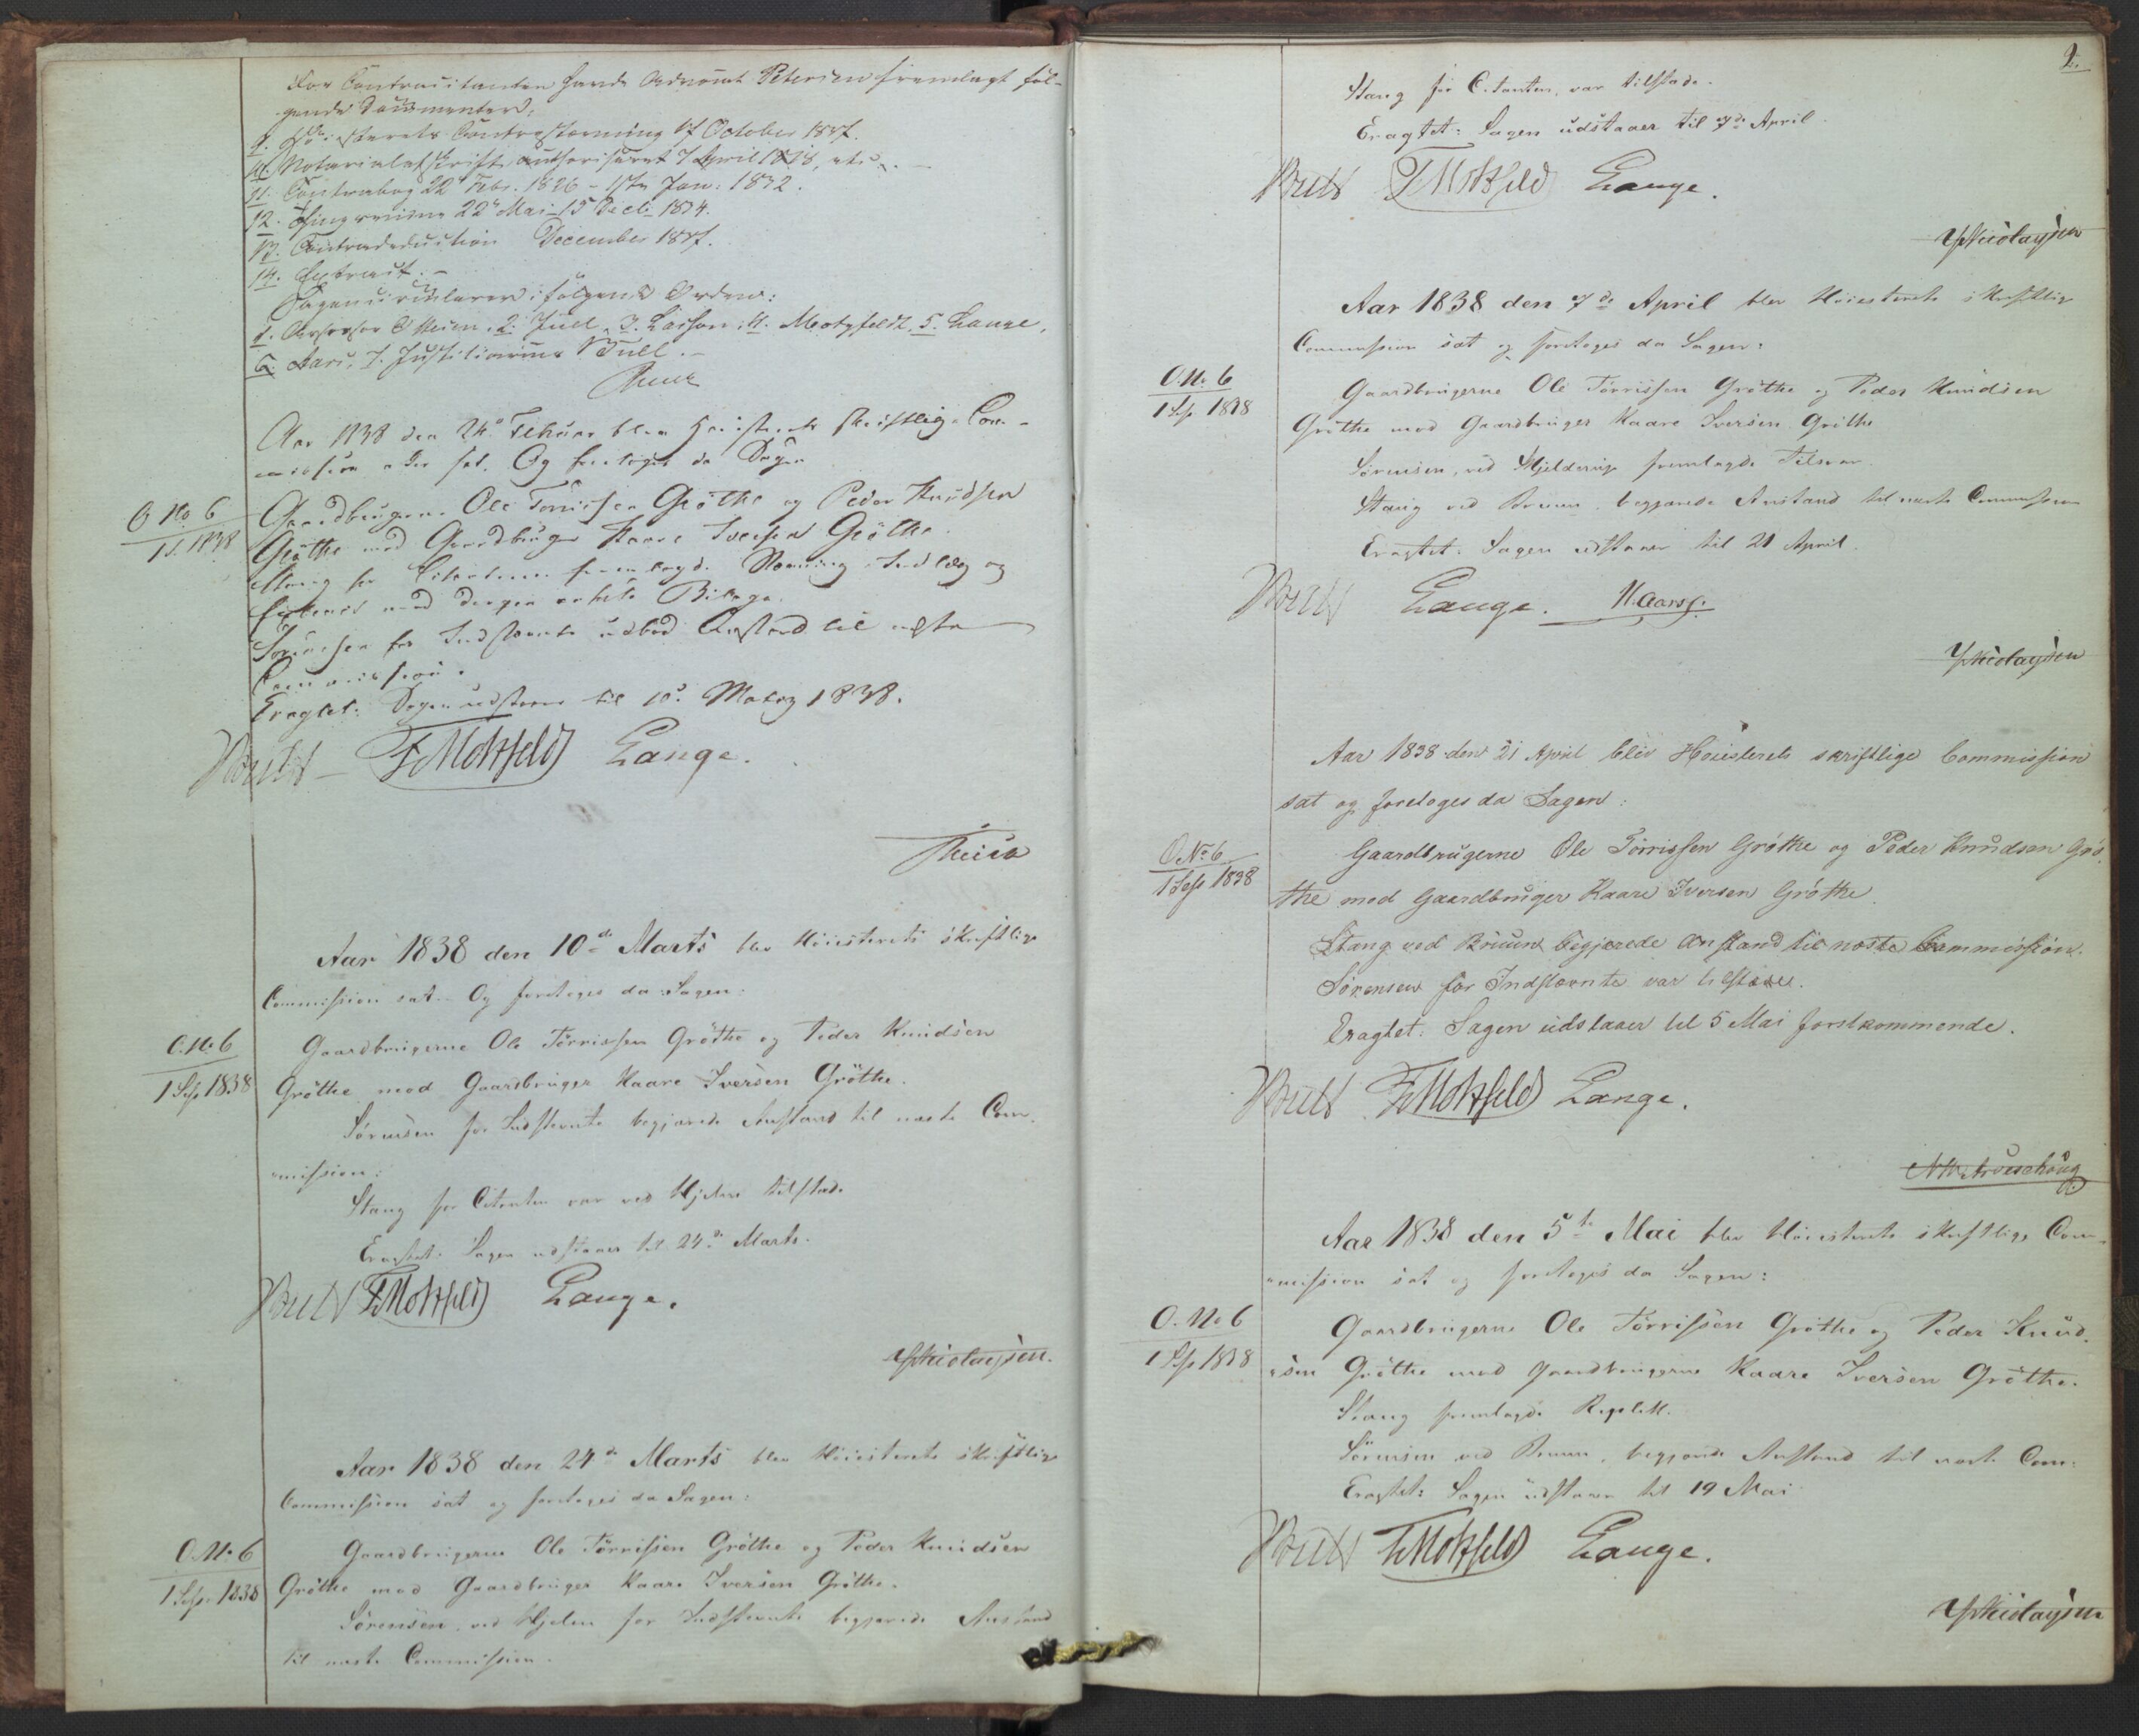 For Contracitanten havde Advocat Petersen fremlagt føl-
gende Documenter:
9. Høiesterets Contrastævning October 1837.
10. Notarialafskrift authoriseret 7 April 1818,
11. Contrabog 22 Febr. 1826 - Jan: 1832.
12. Thingsvidne 22 Mai - 15 Decb: 1834.
13. Contradeduction December 1837.
14. Extract. -
Sagen circulerer i følgende Orden:
1. Assessor 2. Juel, 3. Larson, 4. Motzfeldt, 5. Lange,
6. Aars, 7. Justitiarius Bull. -
Aar 1838 den 24 Februar blev Høiesterets skriftlige Com-
mission sat. Og foretoges da Sagen
O No 6
1 S. 1838
Gaardbrugerne Ole Torrissen Gröthe og Peder Knudsen
Gröthe mod Gaardbruger Kaare Iversen Gröthe.
Stang for Citanterne fremlagde Stevning, Indlæg og
med dertil Bilage.
Sörensen for Indstevnte udbad Anstand til næste
Commission.
Eragtet: Sagen udstaaer til 10 Martz 1838.
Bull FMotzfeldt Lange.
Aar 1838 den 10de Marts blev Höiesterets skriftlige
Commission sat. Og foretoges da Sagen:
O. No 6
1 Sess 1838
Gaardbrugerne Ole Törrissen Gröthe og Peder Knudsen
Gröthe mod Gaardbruger Kaare Iversen Gröthe.
Sörensen for Indstevnte begjærede Anstand til næste Com-
mission:
Stang for Citanten var ved Hjelm tilstæde
Eragtet: Sagen udstaaer til 24de Marts.
Bull FMotzfeldt Lange.
Nicolaysen.
Aar 1838 den 24de Marts blev Höiesterets skriftlige
Commission sat og foretoges da Sagen:
O. No 6
1 Sess. 1838
Gaardbrugerne Ole Törrissen Gröthe og Peder Knudsen
Gröthe mod Gaardbruger Kaare Iversen Gröthe.
Sörensen ved Hjelm for Indstevnte begjærede Anstand
til næste Commission.
2.
Stang for Citanten, var tilstæde.
Eragtet: Sagen udstaaer til 7de April.
Bull FMotzfeldt Lange.
Nicolaysen
Aar 1838 den 7de April blev Höiesterets skriftlige
Commission sat og foretoges da Sagen:
O. No. 6
1 Sess 1838
Gaardbrugerne Ole Törrissen Gröthe og Peder Knudsen
Gröthe mod Gaardbruger Kaare Iversen Gröthe
Sörensen, ved Hjelderup fremlagde Tilsvar.
Stang ved Bruun, begjærede Anstand til næste Commission
Eragtet: Sagen udstaaer til 21 April.
Bull Lange. N. Aars.
Nicolaysen
Aar 1838 den 21 April blev Höiesterets skriftlige Commission
sat og foretoges da Sagen:
O. No 6
1 Sess 1838
Gaardbrugerne Ole Törrissen Gröthe og Peder Knudsen Grö-
the mod Gaardbruger Kaare Iversen Gröthe.
Stang ved Bruun begjærede Anstand til næste Commission.
Sörensen for Indstævnte var tilstæde.
Eragtet: Sagen udstaaer til 5 Mai förstkommende.
Bull FMotzfeldt Lange.
Aar 1838 den 5te Mai blev Höiesterets skriftlige Com-
mission sat og foretoges da Sagen:
O. No 6
1 Sess 1838
Gaardbrugerne Ole Törrissen Gröthe og Peder Knud-
sen Gröthe mod Gaardbrugerne Kaare Iversen Gröthe.
Stang fremlagde Replik.
Sörensen ved Bruun, begjærede Anstand til næste Com:
Eragtet: Sagen udstaaer til 19 Mai
Bull FMotzfeldt Lange.
Nicolaysen